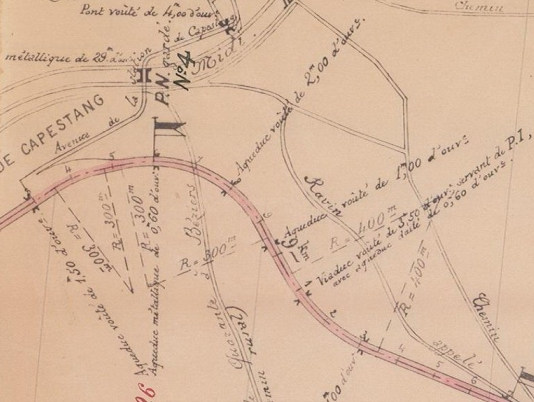 Pont voûté de 4,00 d'ouv.
de Capestang
métallique de 29
Chemin
P.N. gardé
N° 4
Midi
DE CAPESTANG
Avenue de la station
Aqueduc voûté de 2,00 d'ouv.
Ravin
Aqueduc voûté de 1,00 d'ouv.
Viaduc voûté de 3,50 d'ouv. servant de P.I,
avec aqueduc dallé de 0,60 d'ouv.
R = 300m
R = 300m
R = 300m
Aqueduc voûté de 1,50 d'ouv.
Aqueduc métallique de 0,60 d'ouv.
Béziers
à
Quarante
rural
R = 400m
R = 400m
9 Km
4
5
1
2
3
4
5
6
appelé
Chemin
00 d'ouv